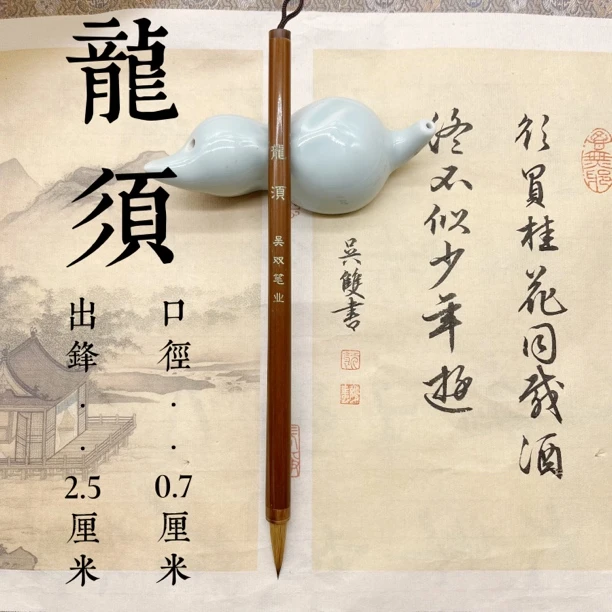 龍須
口徑··0.7厘米
出鋒··2.5厘米
龍須 吴双笔业
欲買桂花同載酒
终不似少年遊
吳雙書